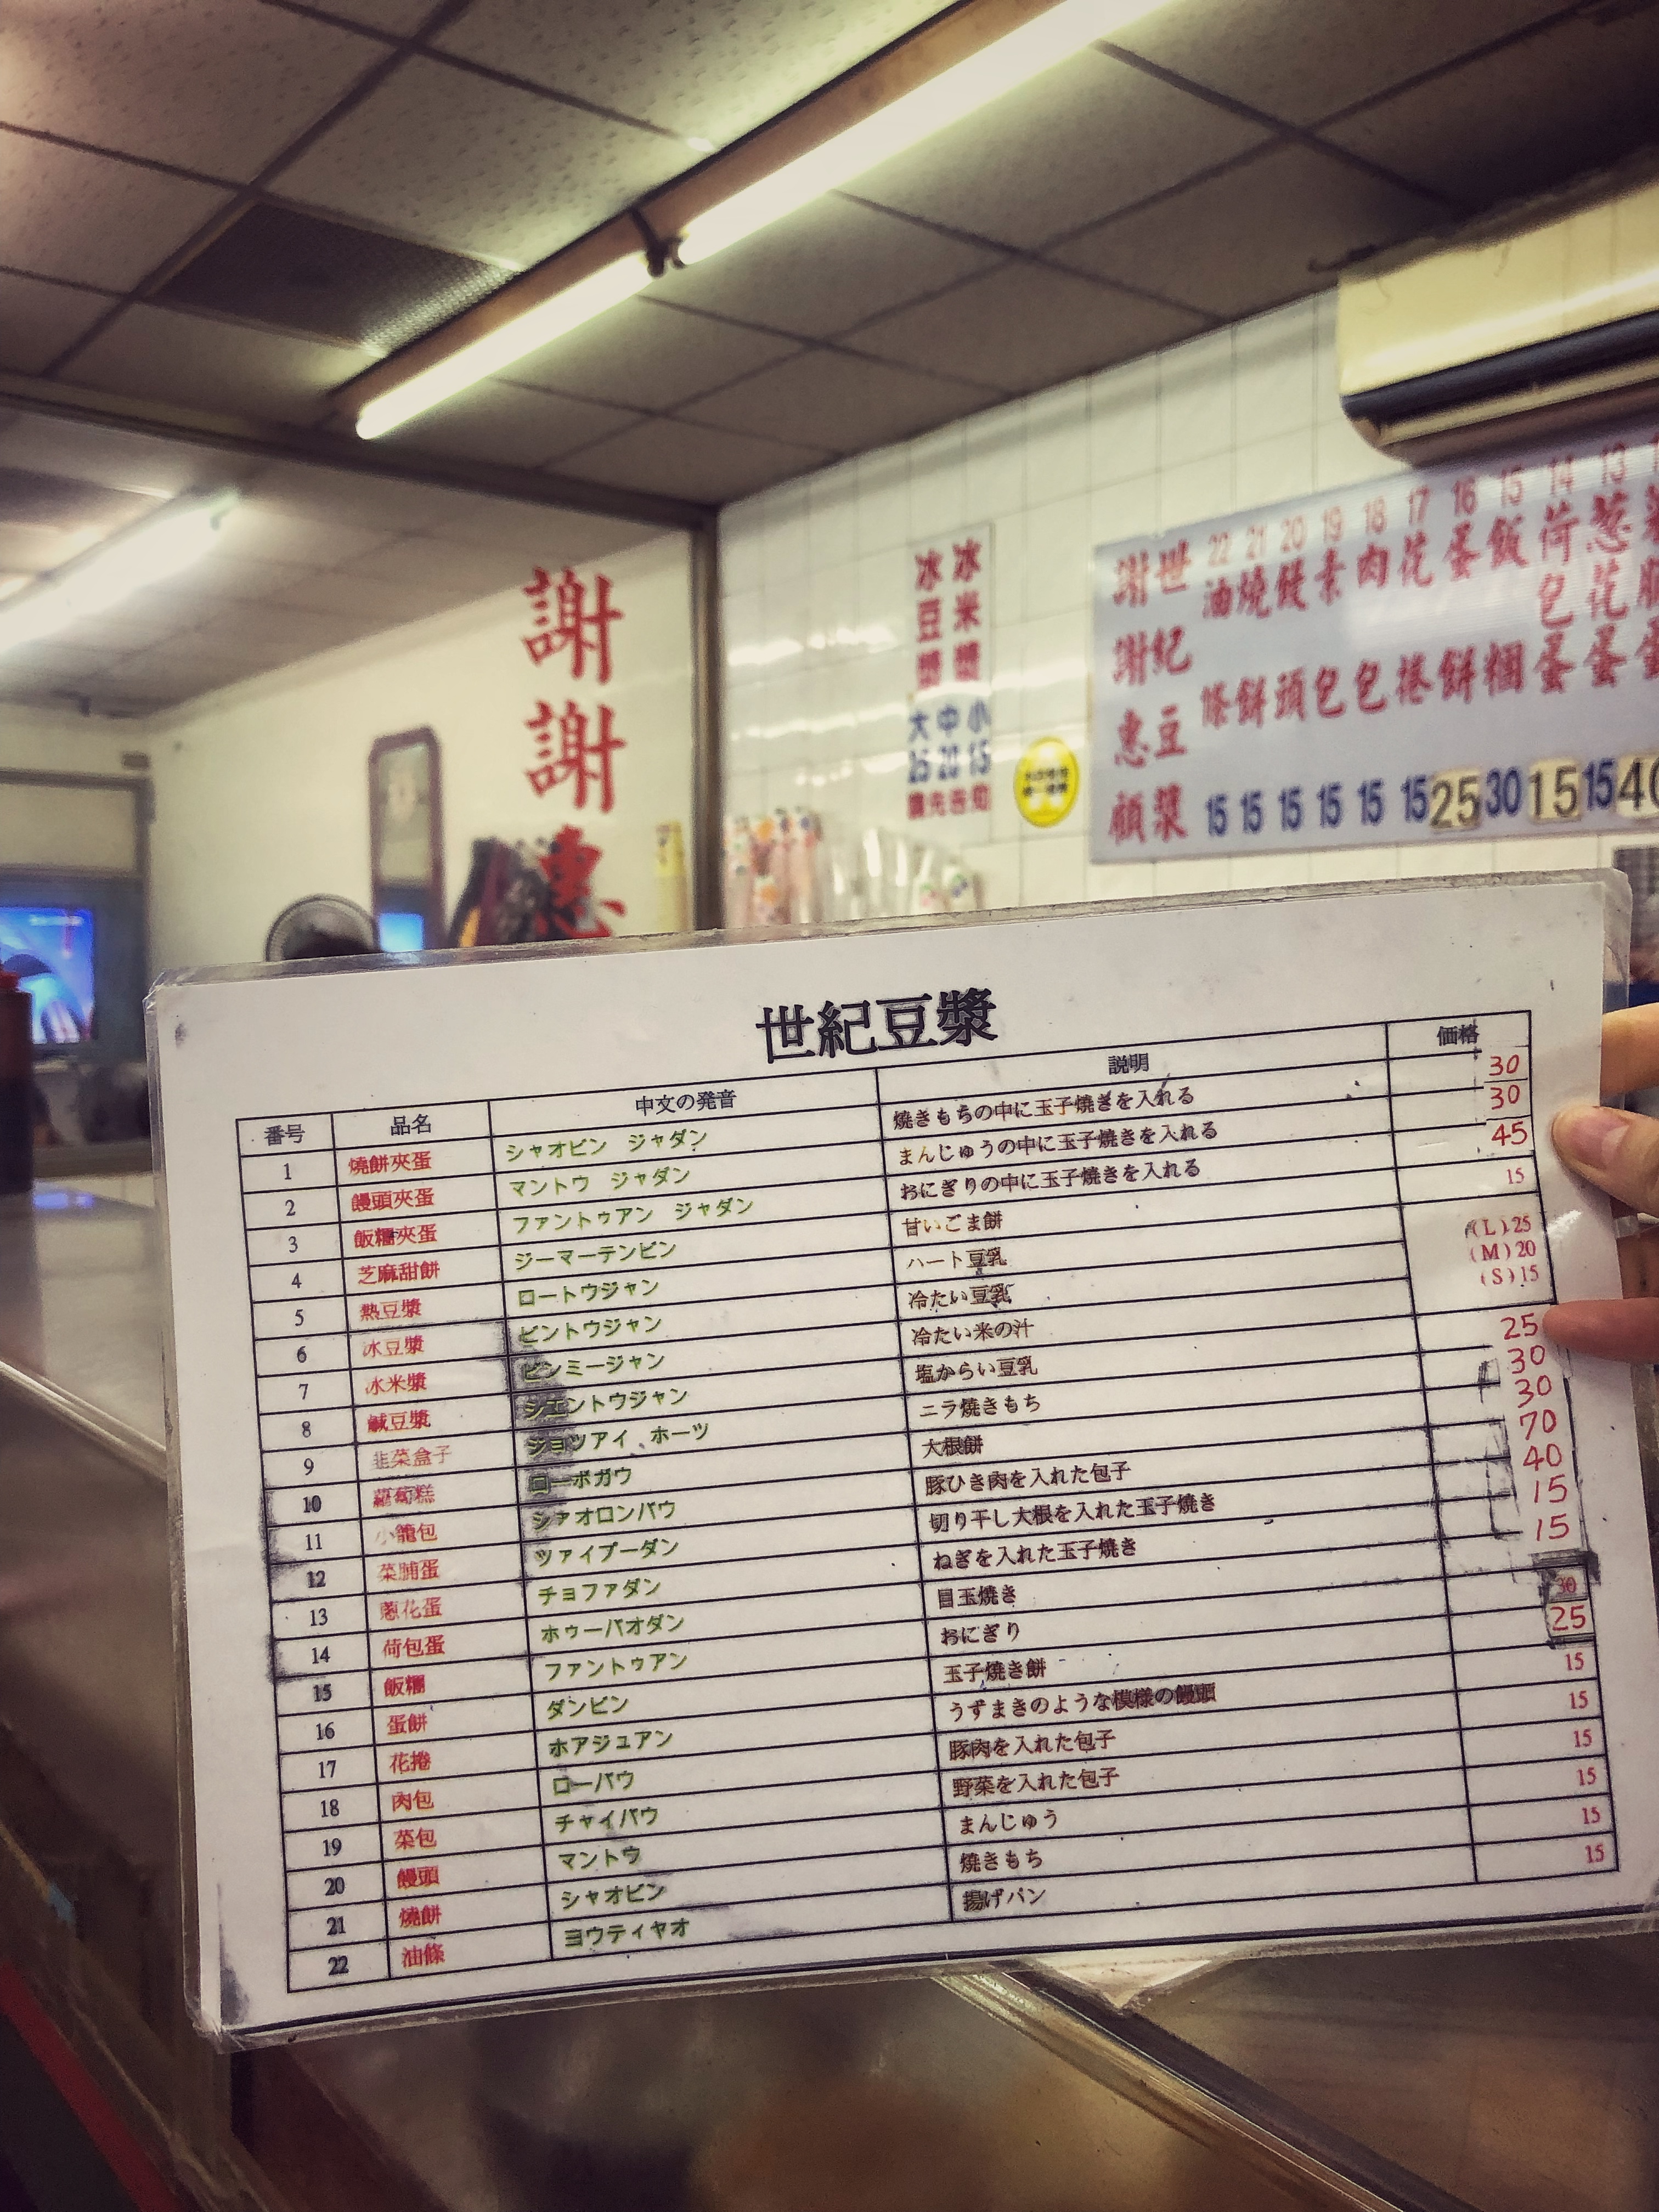 謝謝惠
冰豆漿
冰米漿
大中小
25 20 15
22 21 20 19 18 17 16 15 14 13
油條 燒餅 饅頭 素包 肉包 花捲 蛋餅 飯糰 荷包蛋 葱花蛋
15 15 15 15 15 15 25 30 15 15 40
世紀豆漿
謝謝惠顧
世紀豆漿
番号 品名 中文の発音 説明 価格
1 燒餅夾蛋 シャオビン ジャダン 焼きもちの中に玉子焼きを入れる 30
2 饅頭夾蛋 マントウ ジャダン まんじゅうの中に玉子焼きを入れる 30
3 飯糰夾蛋 ファントゥアン ジャダン おにぎりの中に玉子焼きを入れる 45
4 芝麻甜餅 ジーマーテンビン 甘いごま餅 15
5 熱豆漿 ロートウジャン ハート豆乳 (L)25
6 冰豆漿 ビントウジャン 冷たい豆乳 (M)20
7 冰米漿 ビンミージャン 冷たい米の汁 (S)15
8 鹹豆漿 シエントウジャン 塩からい豆乳 25
9 韭菜盒子 ジョツアイ ホーツ ニラ焼きもち 30
10 蘿蔔糕 ローボガウ 大根餅 30
11 小籠包 シャオロンバウ 豚ひき肉を入れた包子 70
12 菜脯蛋 ツァイプーダン 切り干し大根を入れた玉子焼き 40
13 蔥花蛋 チョファダン ねぎを入れた玉子焼き 15
14 荷包蛋 ホゥーバオダン 目玉焼き 15
15 飯糰 ファントゥアン おにぎり 30
16 蛋餅 ダンビン 玉子焼き餅 25
17 花捲 ホアジュアン うずまきのような模様の饅頭 15
18 肉包 ローバウ 豚肉を入れた包子 15
19 菜包 チャイバウ 野菜を入れた包子 15
20 饅頭 マントウ まんじゅう 15
21 燒餅 シャオビン 焼きもち 15
22 油條 ヨウティヤオ 揚げパン 15